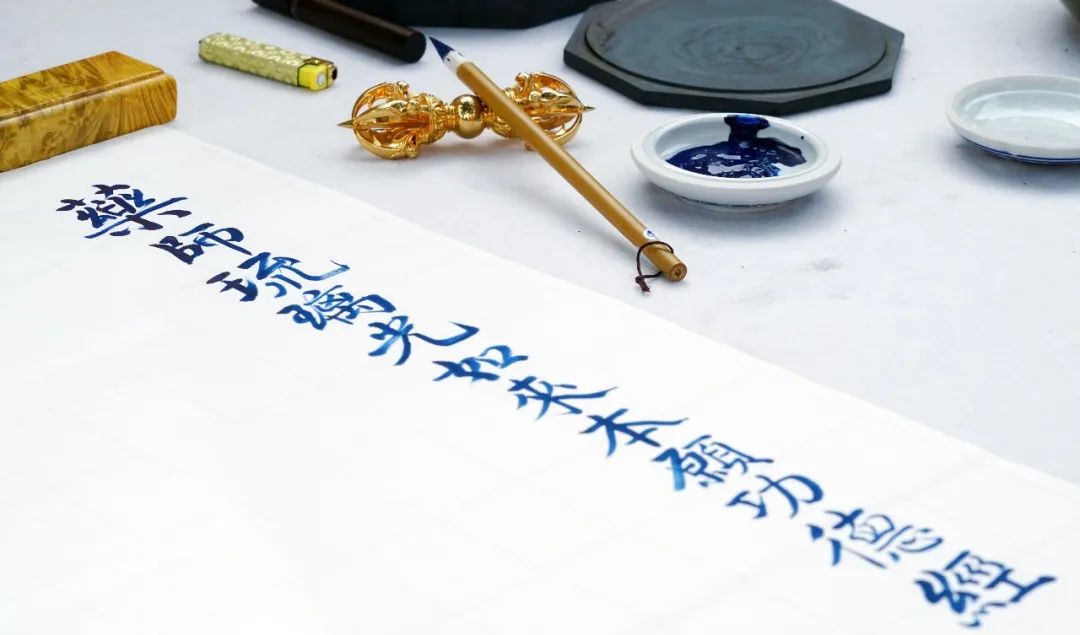 藥師琉璃光如來本願功德經